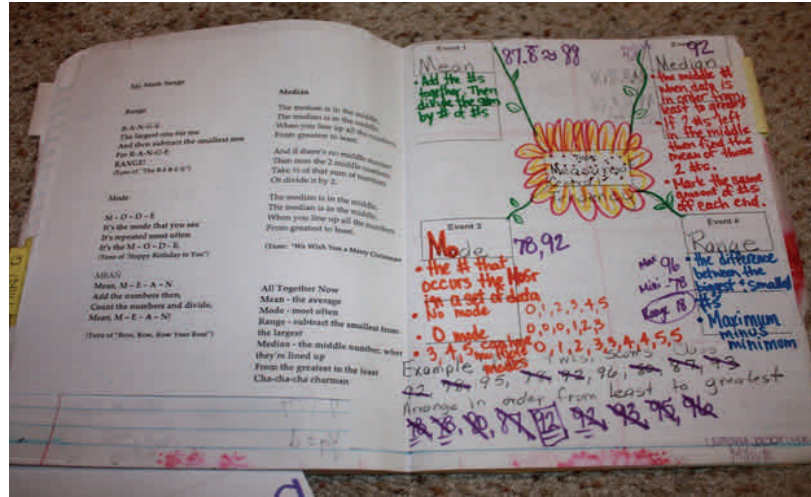 My Math Songs
Range
R-A-N-G-E
The largest one for me
And then subtract the smallest one
For R-A-N-G-E
RANGE!
(Tune of "The B-I-B-L-E")
Mode
M - O - D - E
It's the mode that you see
It's repeated most often
It's the M - O - D - E.
(Tune of "Happy Birthday to You")
MEAN
Mean, M - E - A - N
Add the numbers then,
Count the numbers and divide,
Mean, M - E - A - N!
(Tune of "Row, Row, Row Your Boat")
Median
The median is in the middle,
The median is in the middle,
When you line up all the numbers
From greatest to least.
And if there's no middle number
Then sum the 2 middle numbers
Take ½ of that sum of numbers
Or divide it by 2.
The median is in the middle,
The median is in the middle,
When you line up all the numbers
From greatest to least.
(Tune: "We Wish You a Merry Christmas
All Together Now
Mean - the average
Mode - most often
Range - subtract the smallest from
the largest
Median - the middle number, when
they're lined up
From the greatest to the least
Cha-cha-cha charman
Event 1
87.8 ≈ 88
Mean
• Add the #s
together. Then
divide the sum
by # of #s
92
Median
• the middle #
when data is
in order from
least to greatest
If 2 #s left
in the middle
then find the
mean of those
2 #s.
• Mark the same
amount of #s
off each end.
Event 3
Mode
78,92
• the # that
occurs the MOST
in a set of data
• No mode 0,1,2,3,4,5
• 0 mode 0,0,0,1,2,3
• 3,4,5 can have multiple modes 0,1,2,3,3,4,4,5,5
Event 4
Range
Max 96
Mini -78
Range 18
• the difference
between the
biggest & smallest
#s
• Maximum
minus
minimum
Example
92, 78, 95, 78, 92, 96, 80, 87, 93
Arrange in order from least to greatest
78, 78, 80, 87, 92, 92, 93, 95, 96